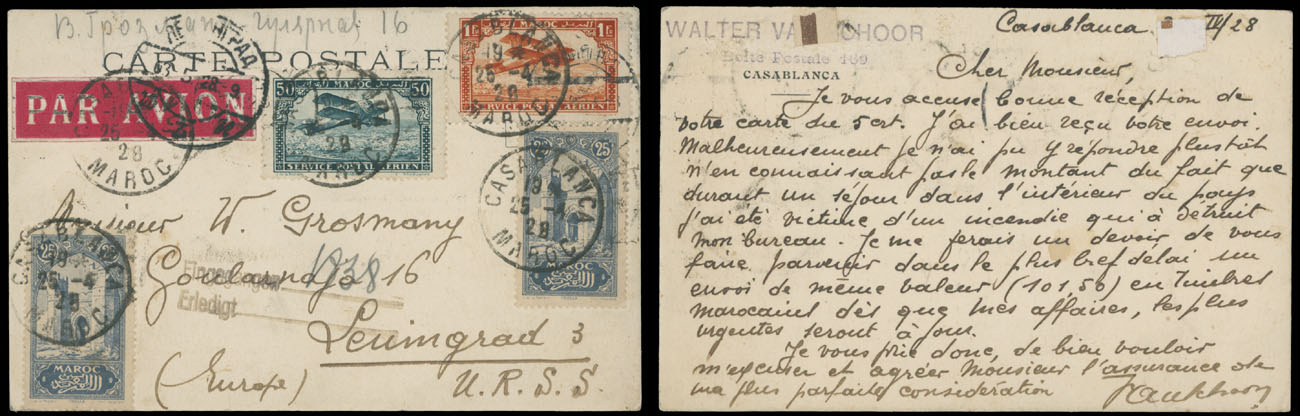 В. Гроzмани 16
CARTE POSTALE
PAR AVION
MAROC
50 50
SERVICE POSTAL AERIEN
1F MAROC 1F
SERVICE POSTAL AERIEN
CASABLANCA
19
25 -4
28
MAROC
CASABLANCA
19
25 -4
28
MAROC
25
MAROC
CASABLANCA
25 -4
28
MAROC
25
MAROC
25
28
MAROC
Monsieur W. Grosmany
16
1838
Eingegangen
Erledigt
Leningrad 3
(Europe) U.R.S.S.
WALTER VA CHOOR
Boîte Postale 469
CASABLANCA
Casablanca IV/28
Cher Monsieur,
Je vous accuse bonne réception de
votre carte du 5 crt. J'ai bien reçu votre envoi.
Malheureusement je n'ai pu y repondre plustôt
n'en connaissant pas le montant du fait que
durant un séjour dans l'intérieur du pays
j'ai été victime d'un incendie qui à détruit
mon bureau. Je me ferais un devoir de vous
faire parvenir dans le plus bref délai un
envoi de même valeur (101,50) en Timbres
marocains dès que mes affaires, les plus
urgentes seront à jour.
Je vous prie donc, de bien vouloir
m'excuser et agréer Monsieur l'assurance de
ma plus parfaite considération